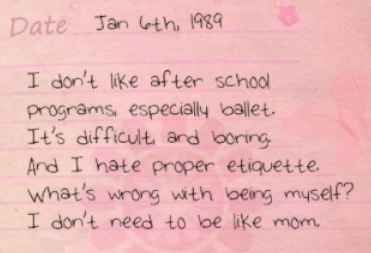 Date Jan 6th, 1989
I don't like after school
programs, especially ballet.
It's difficult, and boring.
And I hate proper etiquette.
What's wrong with being myself?
I don't need to be like mom.